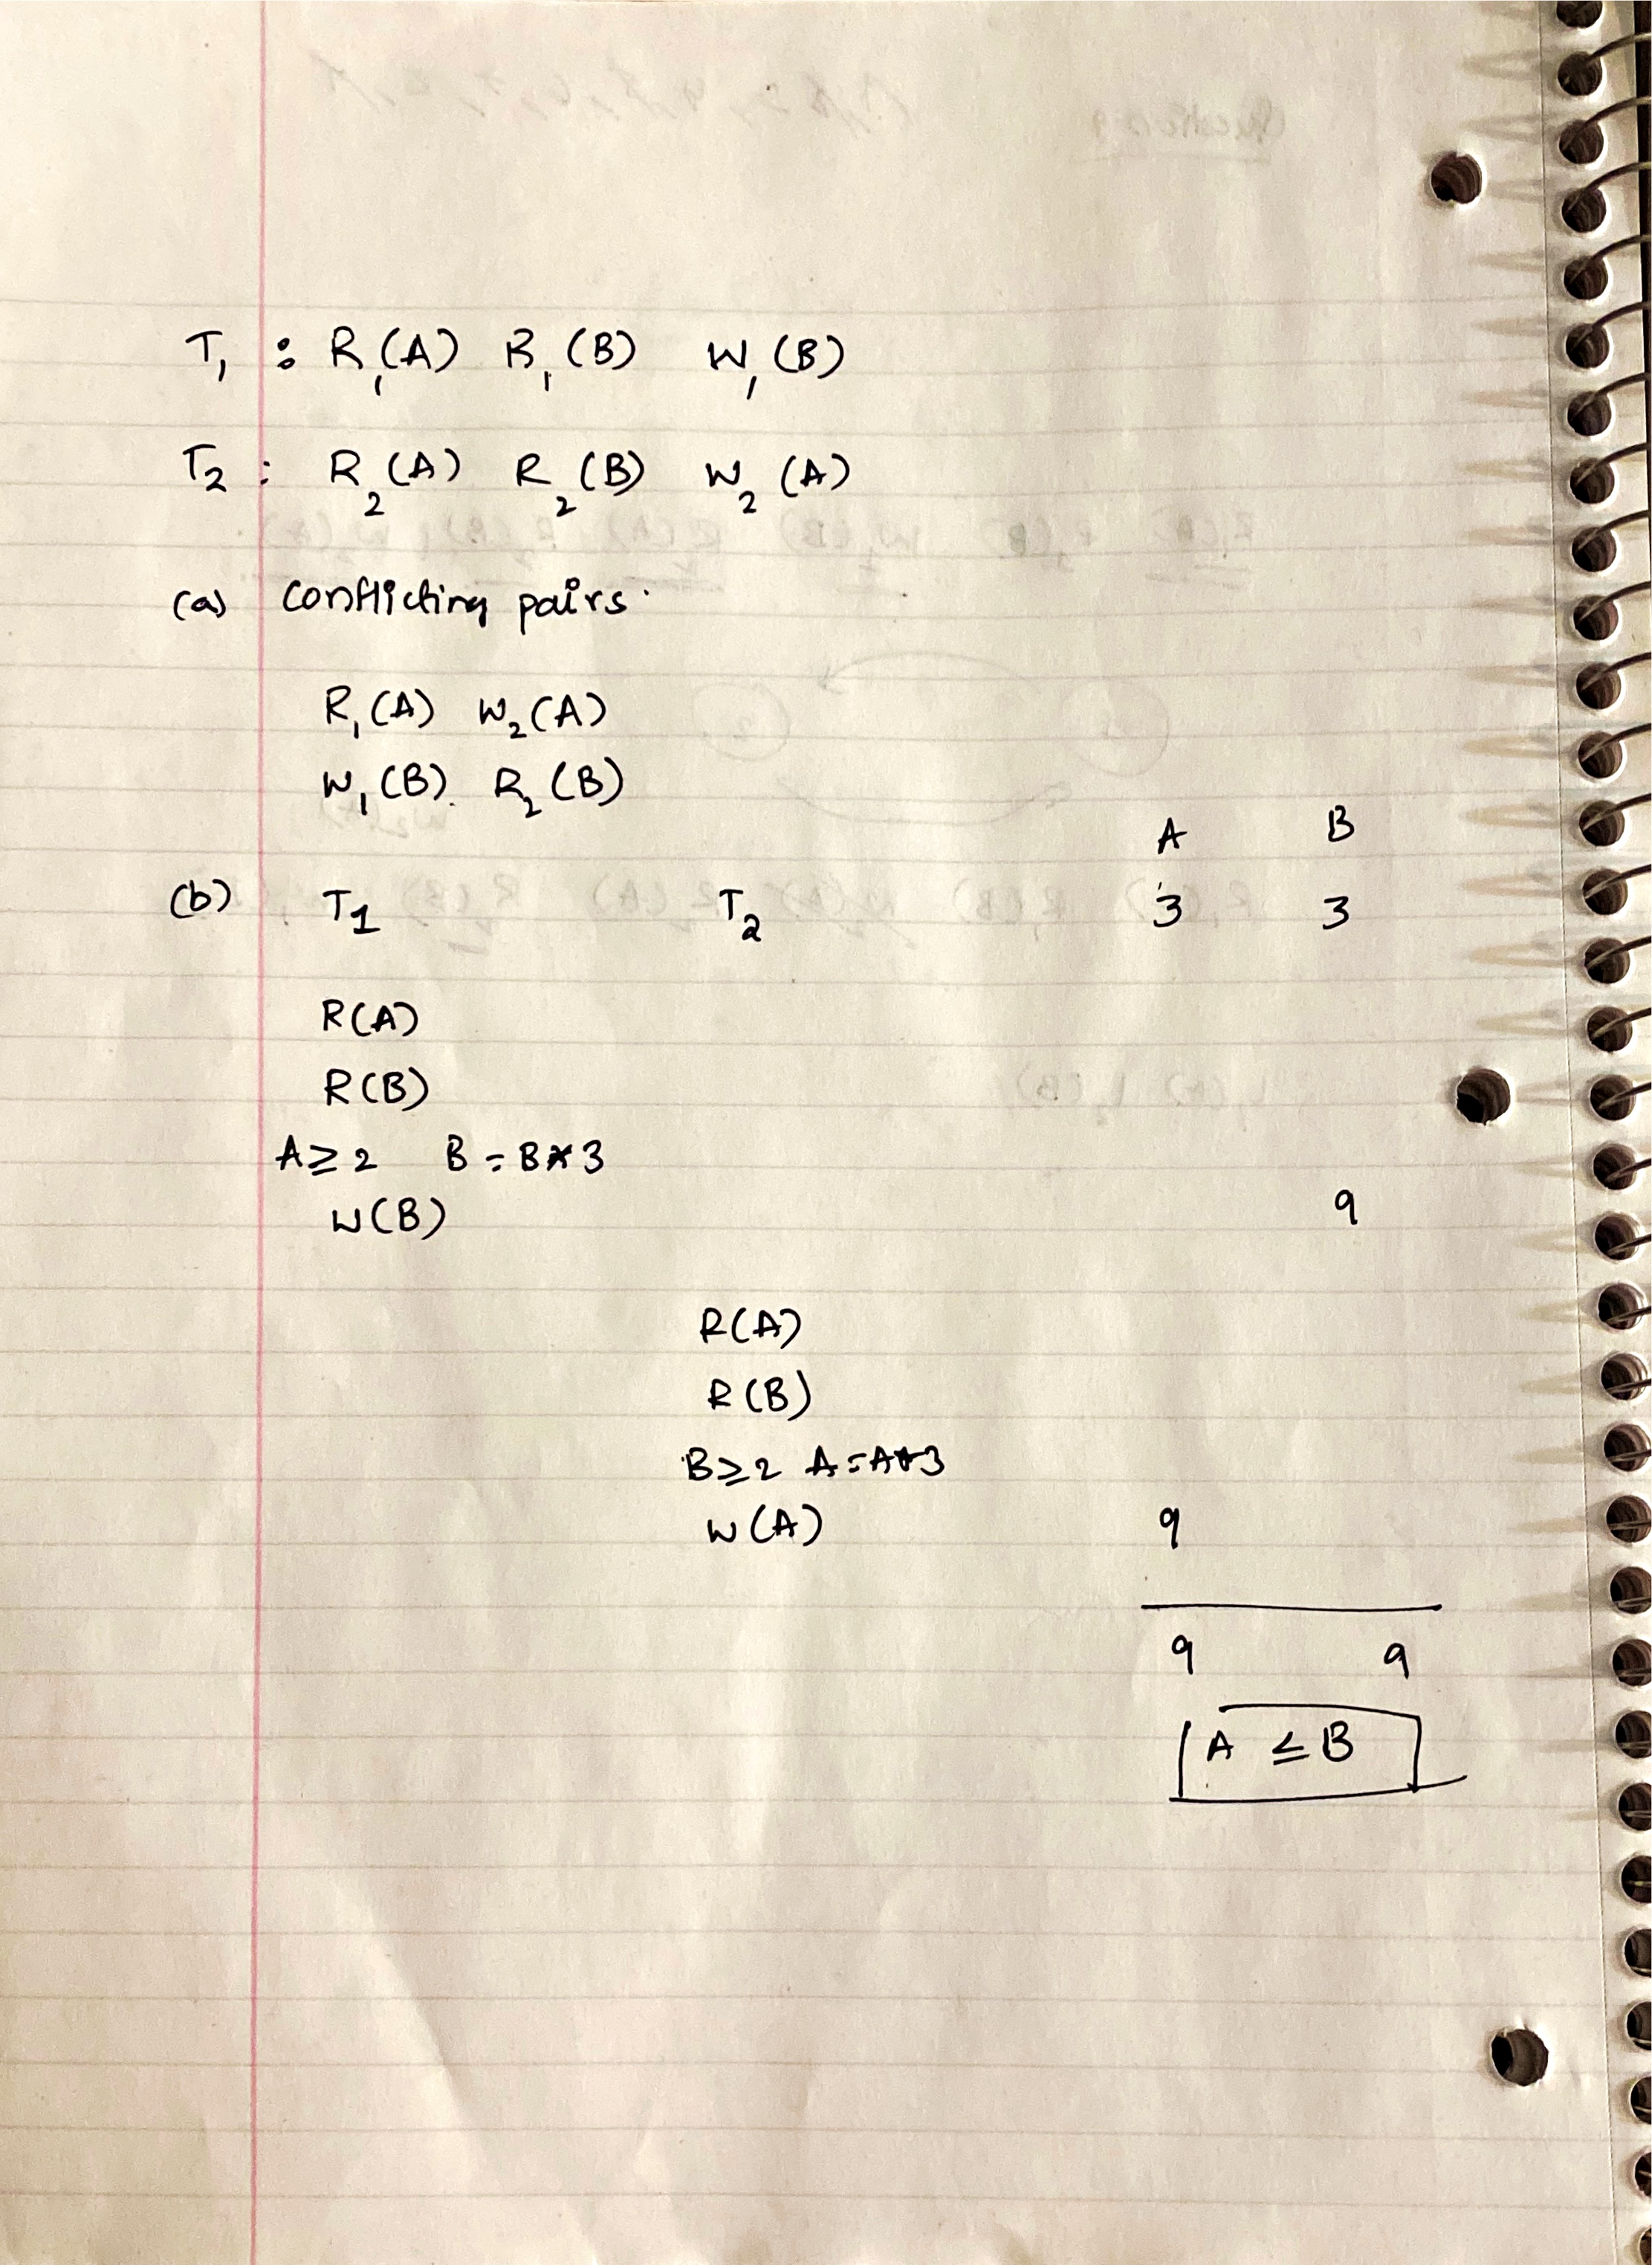 T₁ : R₁(A) R₁(B) W₁(B)
T₂ : R₂(A) R₂(B) W₂(A)
(a) Conflicting pairs.
R₁(A) W₂(A)
W₁(B). R₂(B)
A B
(b) T1 T2 3 3
R(A)
R(B)
A ≥ 2 B = B*3
W(B) 9
R(A)
R(B)
B ≥ 2 A = A*3
W(A) 9
9 9
A ≤ B